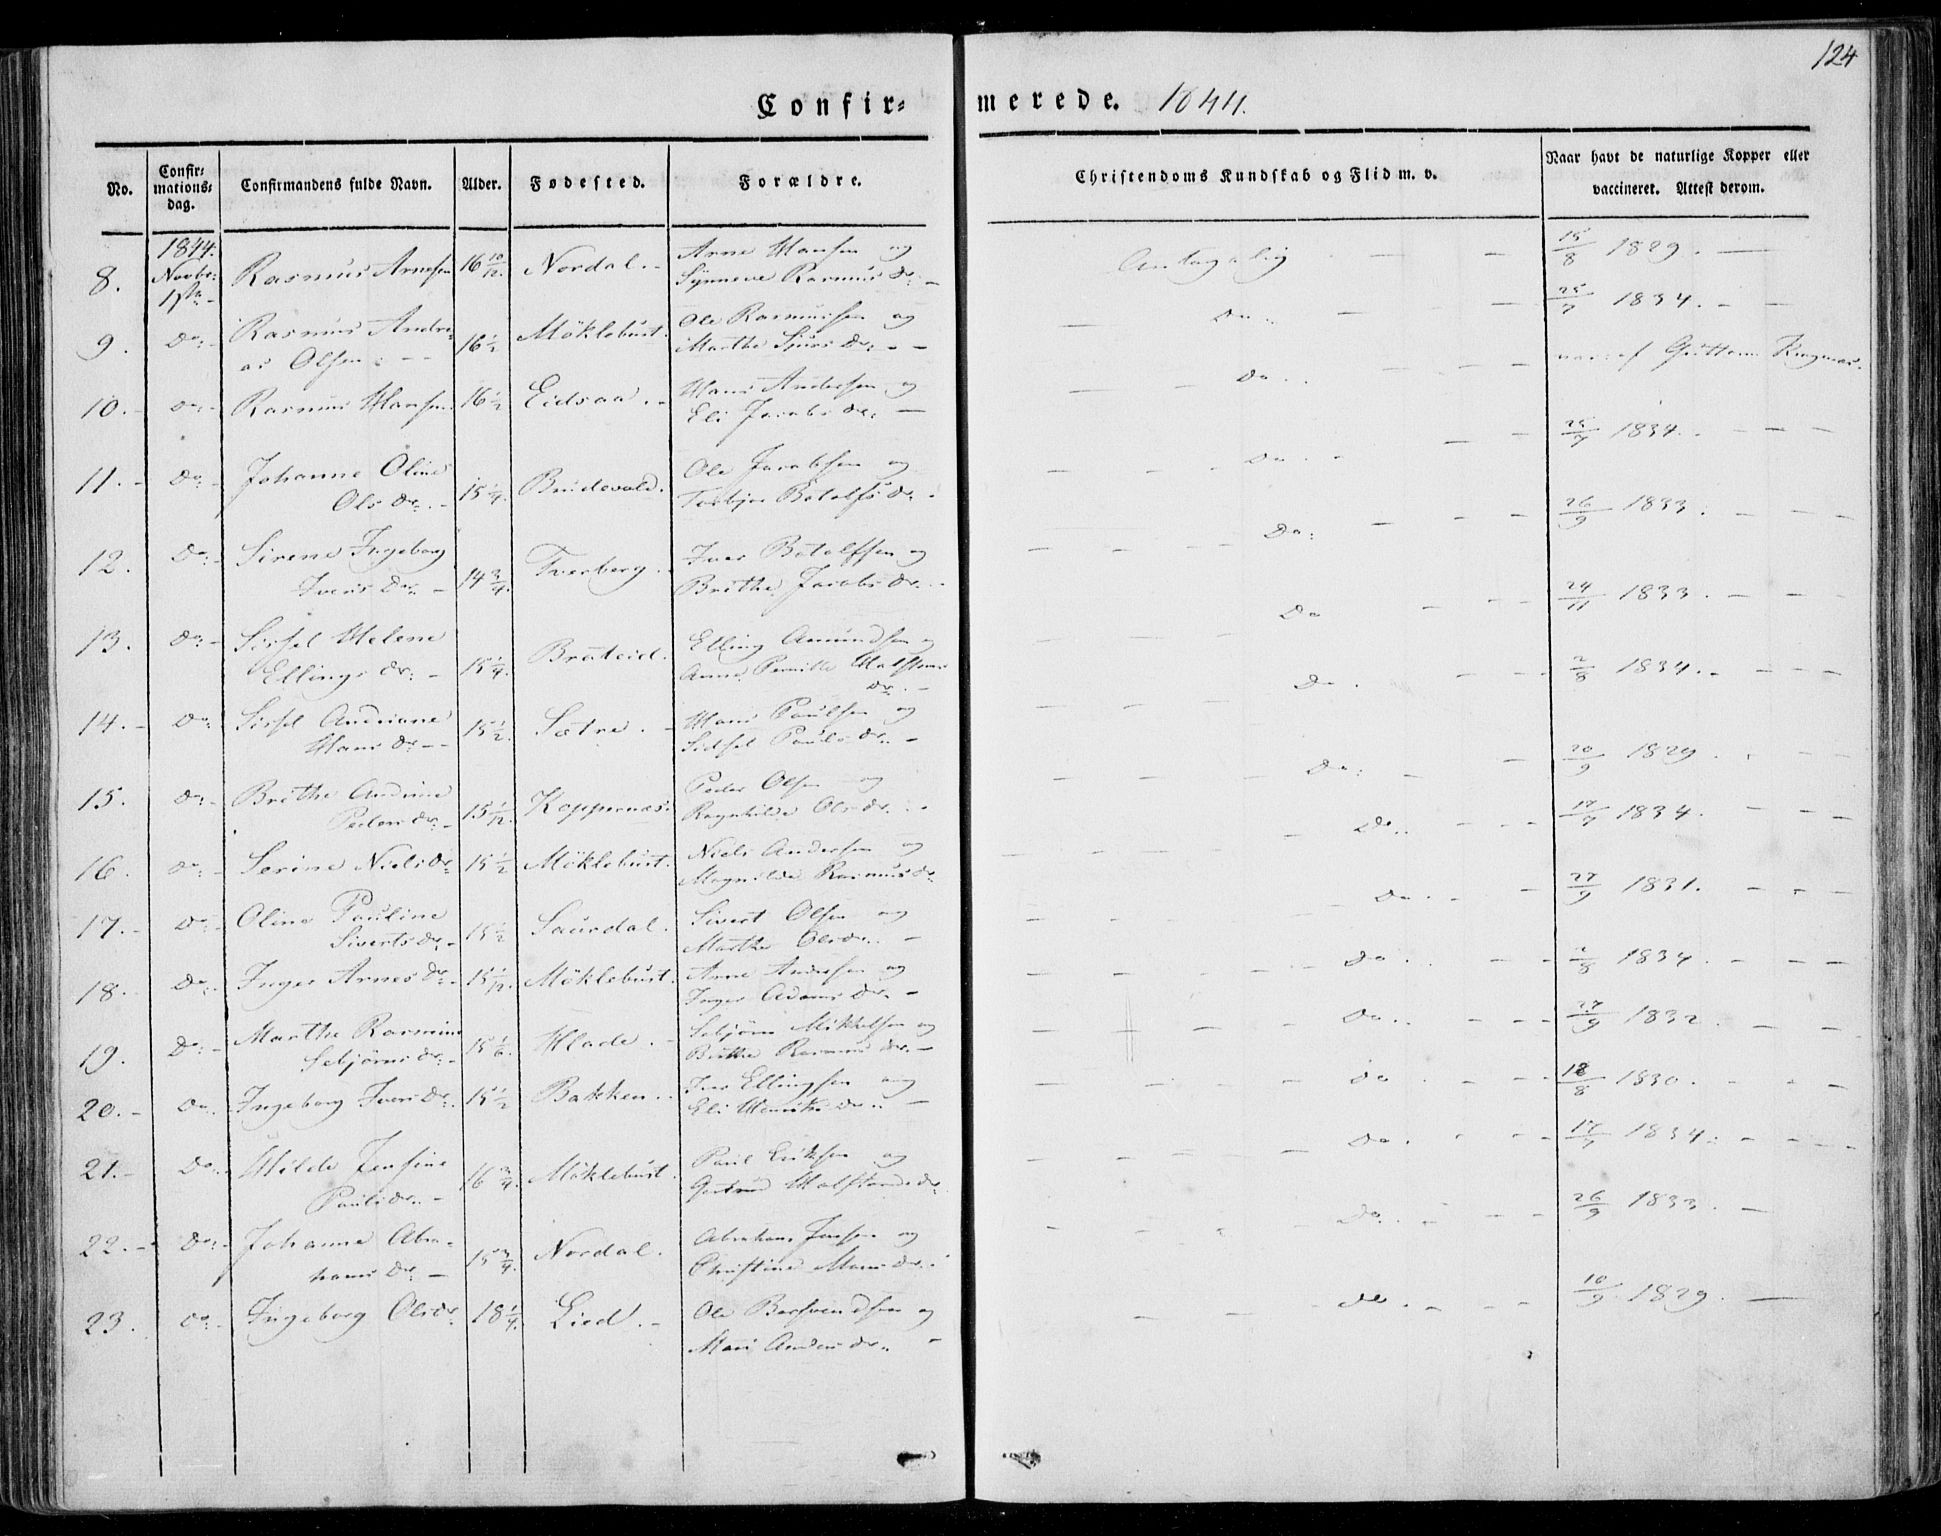 124
Confirmerede. 1844.
No. Confirmationsdag. Confirmandens fulde Navn. Alder. Fødested. Forældre. Christendoms Kundskab og Flid m. v. Naar havt de naturlige Kopper eller vaccineret. Attest derom.
1844.
8. Novbr. 1ste Rasmus Arnesen 16 10/12 Nordal. Arne Hansen og Synneve Rasmusdr. Antagelig 15/8 1829.
9. Do. Rasmus Andreas Olsen 16 1/2 Möklebust. Ole Rasmussen og Marthe Sjursdr. Do. 25/7 1834.
10. Do. Rasmus Hansen 16 1/2 Eidsaa. Hans Andersen og Eli Jacobsdr. Do. af Guttorm
11. Do. Johanne Oline Olsdr. 15 1/4 Brudevold. Ole Jacobsen og Botolfsdr. Do. 25/7 1834.
12. Do. Sirene Ingeborg Iversdr. 14 3/4 Tverberg. Iver Botolfsen og Brithe Jacobsdr. Do. 26/9 1833.
13. Do. Sissel Helene Ellingsdr. 15 1/4 Brateid. Elling Amundsen og Anne Pernille dr. Do 24/11 1833.
14. Do. Sissel Andriane Hansdr. 15 1/2 Sætre. Hans Paulsen og Sidsel Paulsdr. Do. 2/8 1834.
15. Do. Brithe Andrine Pedersdr. 15 1/12 Koppernæs. Peder Olsen og Ragnhilde Olsdr. Do. 20/9 1829.
16. Do. Serine Nielsdr. 15 1/2 Möklebust. Niels Andersen og Magnilde Rasmusdr. Do. 17/7 1834.
17. Do. Oline Pauline Sivertsdr. 15 1/2 Saurdal. Sivert Olsen og Marthe Olsdr. Do. 27/9 1831.
18. Do. Inger Arnesdr. 15 1/12 Möklebust. Arne Andersen og Inger Adamsdr. Do. 2/8 1834.
19. Do. Marthe Rasmine Sebjörnsdr. 15 1/6. Hlade. Sebjörn Mikkelsen og Brithe Rasmusdr. Do. 27/9 1832.
20. Do. Ingeborg Iversdr. 15 1/2 Bakken. Iver Ellingsen og Eli Henriksdr. Do 18/8 1830.
21. Do. Hilde Jensine Paulsdr. 16 3/4. Möklebust. Paul Eriksen og Gertrud dr. Do. 17/7 1834.
22. Do. Johanne Abrahamsdr. 15 3/4. Nordal. Abraham Jensen og Christine Monsdr. Do. 26/9 1833.
23. Do. Ingeborg Olsdr. 18 1/4. Lied. Ole og Mari Andersdr. Do. 10/9 1829.